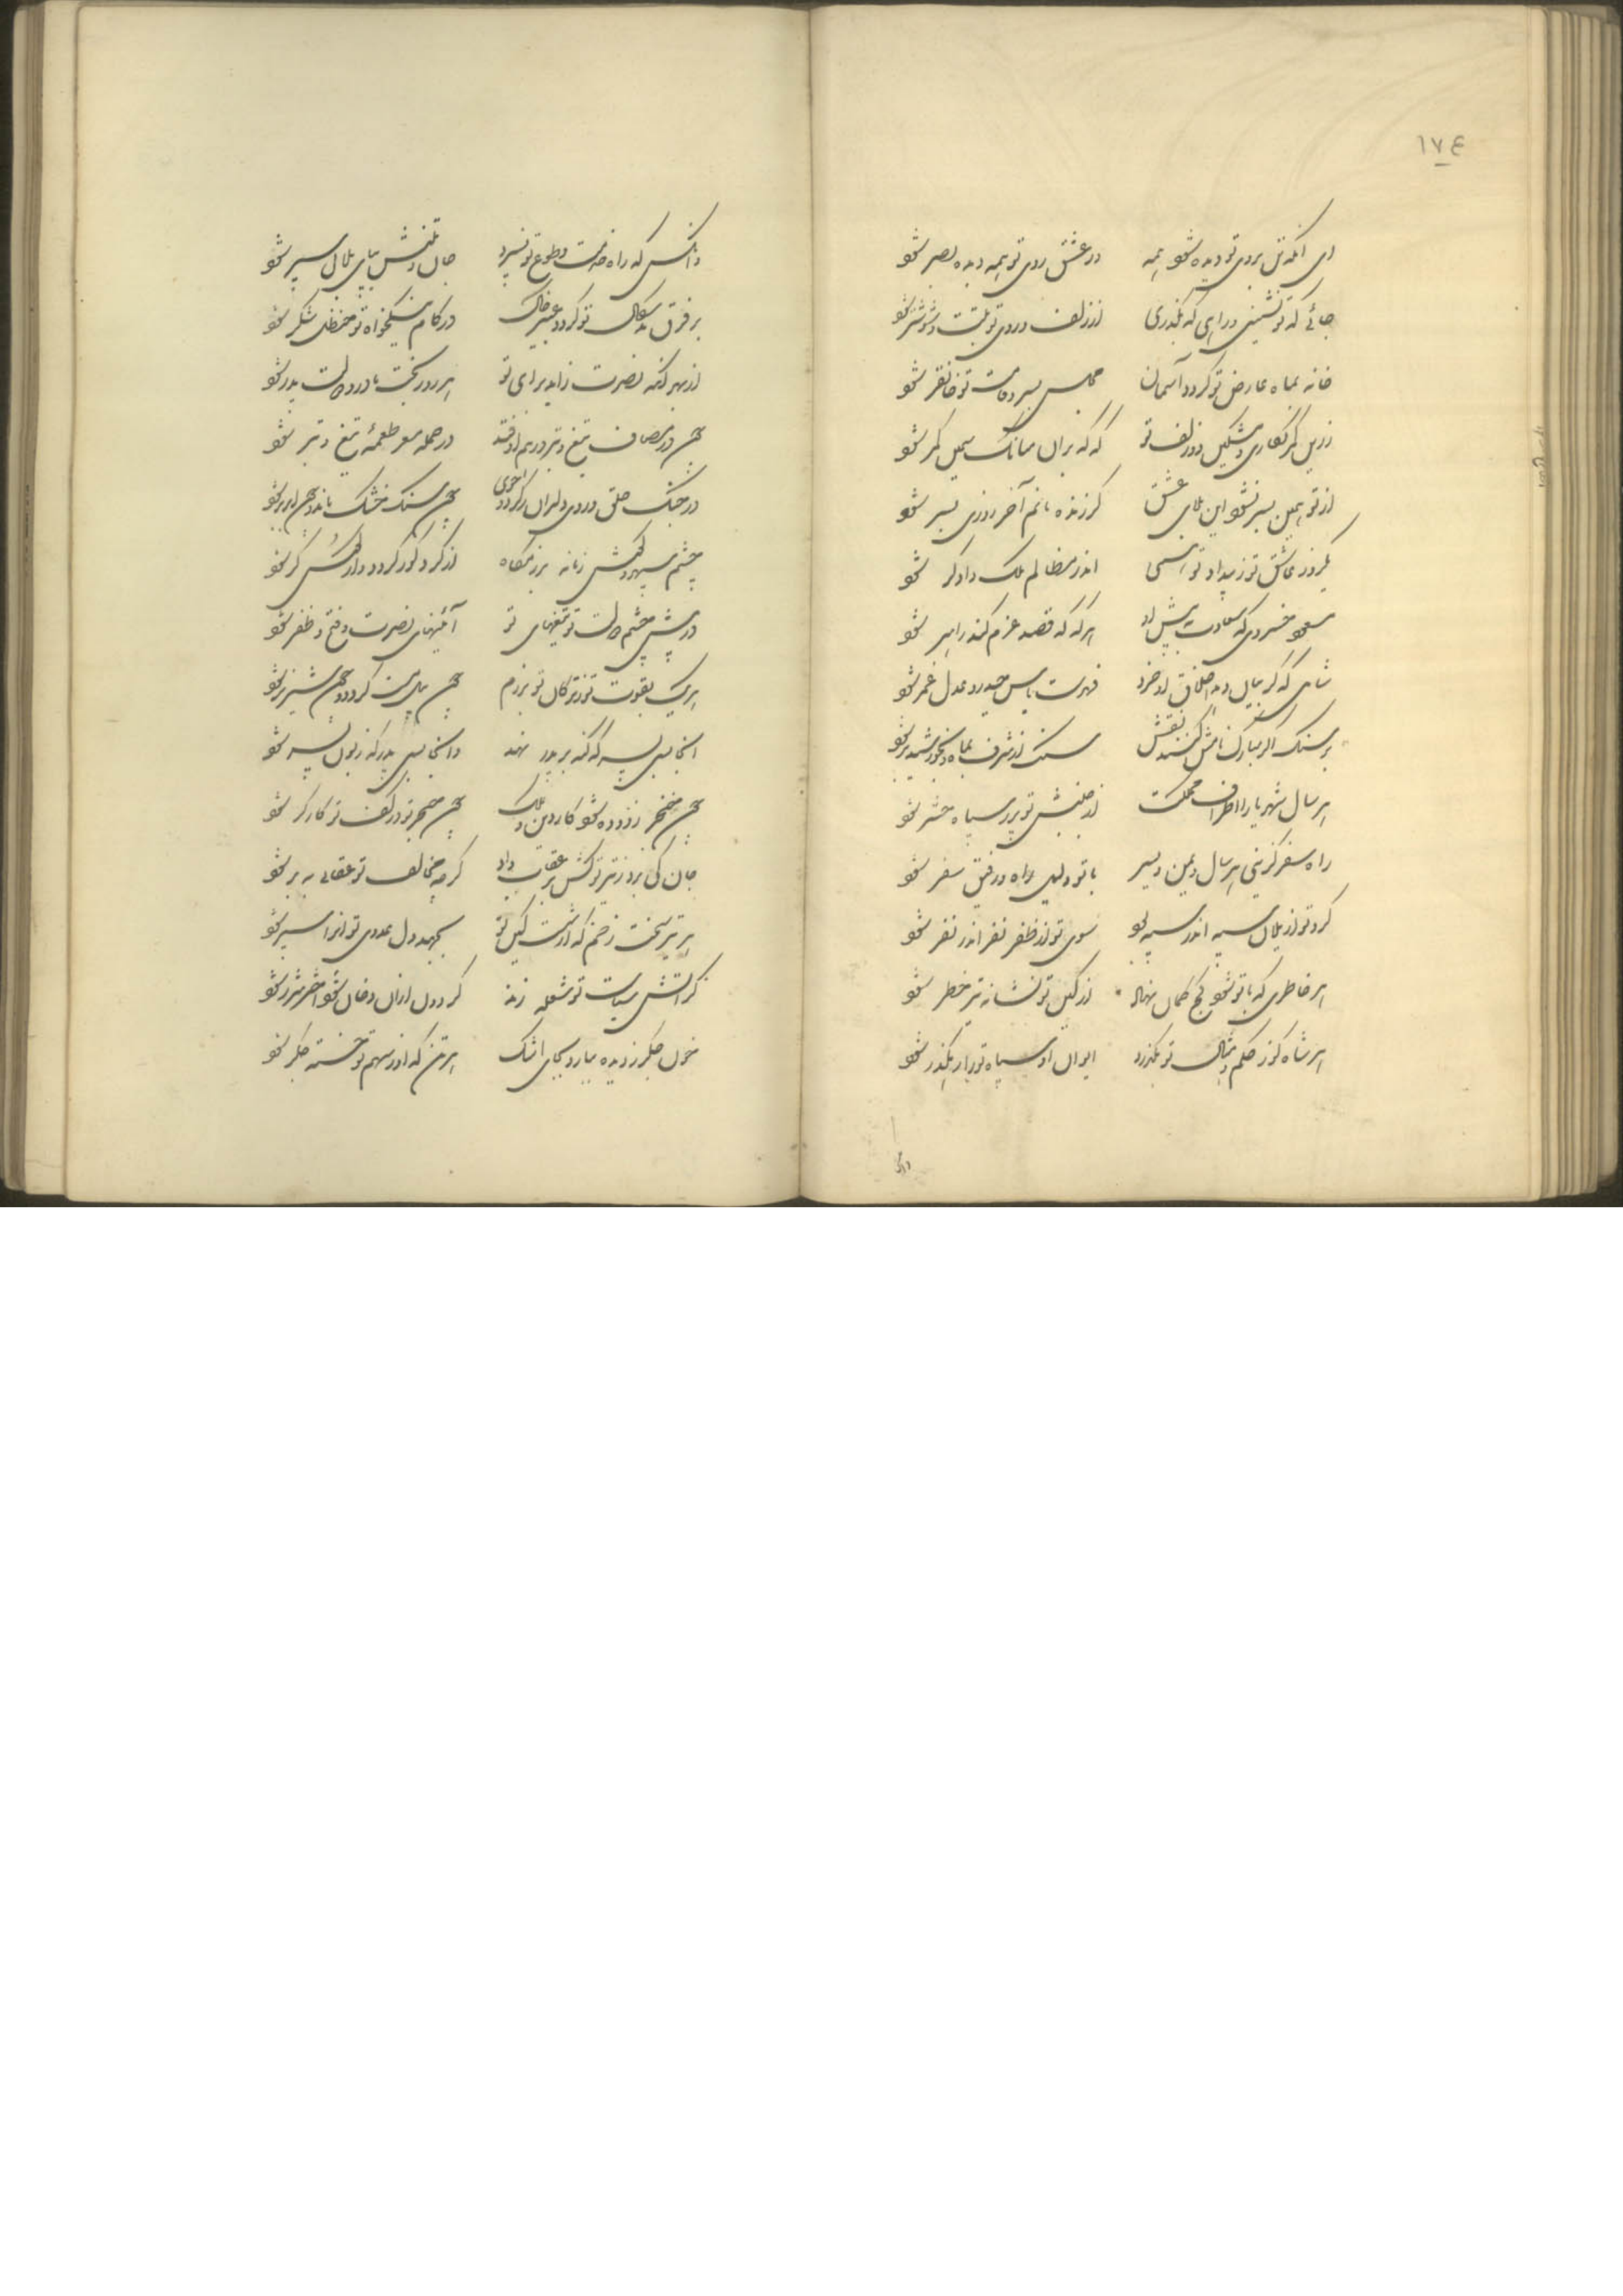 ١٧٤
ای آنکه تن بروی تو دیده شود همه در عشق روی تو همه دیده بصر شود
جائی که تو نشینی و راهی که بگذری از زلف و روی تو تبت و شوشتر شود
خانه بماه عارض تو گردد آسمان مجلس بسرو قامت تو غاتفر شود
زرین کمر نگاری و مشکین دو زلف تو گه گه بران میانک سیمین کمر شود
از تو همین بسر نشود این بلای عشق گر زنده مانم آخر روزی بسر شود
یکروز عاشق تو ز بیداد تو همی اندر مظالم ملک دادگر شود
مسعود خسروی که سعادت به پیش او هر گه که قصد و عزم کند راهبر شود
شاهی که گر بیان دهد اخلاق او خرد فهرست باس حیدر و عدل عمر شود
بر سنگ اگر مبارک نامش کنند نقش سنگ از شرف بماه و بخورشید بر شود
هر سال شهریارا اطراف مملکت از جنبش تو پر ز سپاه و حشر شود
راه سفر گزینی هر سال و یمن و یسر با تو دلیل راه و رفیق سفر شود
گرد تو از یلان سپه اندر سپه بود سوی تو از ظفر نفر اندر نفر شود
هر خاطری که با تو شود کج کمان نهاد از کین تو نشانه تیر خطر شود
هر شاه کو ز حکم و مثال تو بگذرد ایوان او سپاه ترا رهگذر شود
وانکس
وانکس که راه خدمت و طوع تو نسپرد جان و تنش بپای بلا پی سپر شود
بر فرق بدسگال تو گردد عبیر خاک در کام نیکخواه تو حنظل شکر شود
از بهر آنکه نصرت زاید برای تو هر روز بخت مادر و دولت پدر شود
چون در مصاف تیغ و تبر درهم اوفتد در حمله مغز طعمه تیغ و تبر شود
در جنگ حلق و روی دلیران ز گرد و خوی چون سنگ خشک ماند و چون ابر تر شود
چشم سپهر و گوش زمانه برزمگاه از گرد کور گردد و از کوس کر شود
در پیش چشم دولت تو تیغهای تو آئینهای نصرت و فتح و ظفر شود
هریک بقوت تو ز ترکان تو برزم چون پیل مست گردد و چون شیر نر شود
آنجا بسی پسر که گنه بر پدر نهد وآنجا بسی پدر که ز هول پسر شود
چون خنجر زدوده شود کار دین و ملک چون خنجر تو در کف تو کارگر شود
جان کی برد ز تیر تو کش پر عقاب داد گرچه مخالف تو عقابی به پر شود
هر تیر سخت زخم که از شست کین تو بجهد دل عدوی تو آنرا سپر شود
گر آتش سیاست تو شعله زند گردون ازان دخان شود اختر شرر شود
خون جگر ز دیده ببارد بجای اشک هر تن که او ز سهم تو خسته جگر شود